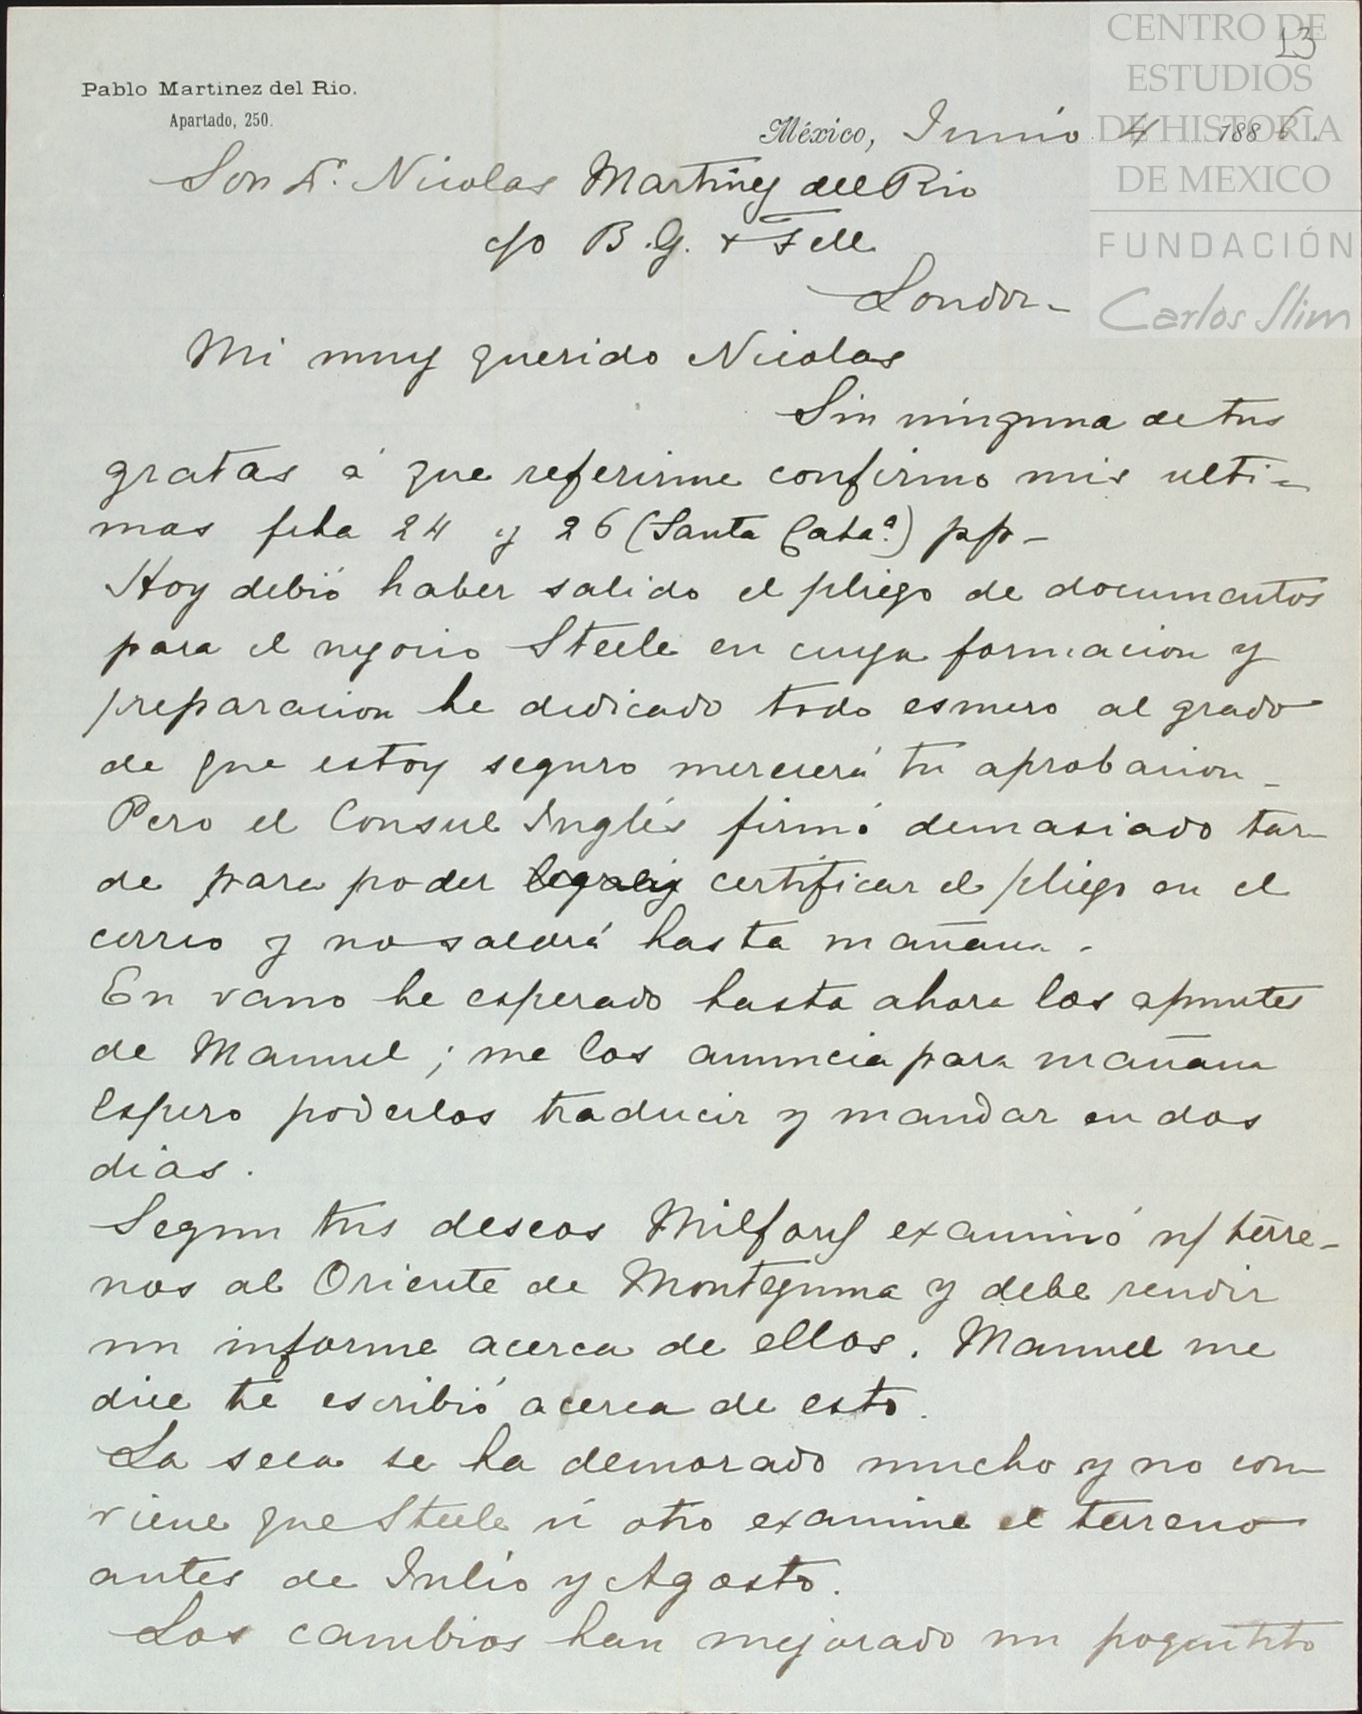 CENTRO DE
ESTUDIOS
DE HISTORIA
DE MEXICO
FUNDACIÓN
Carlos Slim
13
Pablo Martinez del Rio.
Apartado, 250.
México, Junio 4 1886.
Sor Dn. Nicolas Martinez del Rio
c/o B. G. & Fell
London-
Mi muy querido Nicolas
Sin ninguna de tus
gratas á que referirme confirmo mis ulti-
mas fcha 24 y 26 (Santa Cataa.) pp-
Hoy debió haber salido el pliego de documentos
para el negocio Steele en cuya formacion y
preparacion he dedicado todo esmero al grado
de que estoy seguro merecerá tu aprobacion_
Pero el Consul Inglés firmó demasiado tar-
de para poder legaliz certificar el pliego en el
correo y no saldrá hasta mañana.
En vano he esperado hasta ahora los apuntes
de Manuel; me los anuncia para mañana
Espero poderlos traducir y mandar en dos
dias.
Segun tus deseos examinó n/ terre-
nos al Oriente de Montezuma y debe rendir
un informe acerca de ellos. Manuel me
dice te escribió acerca de esto.
La seca se ha demorado mucho y no con-
viene que Steele ni otro examine el terreno
antes de Julio y Agosto.
Los cambios han mejorado un poquitito